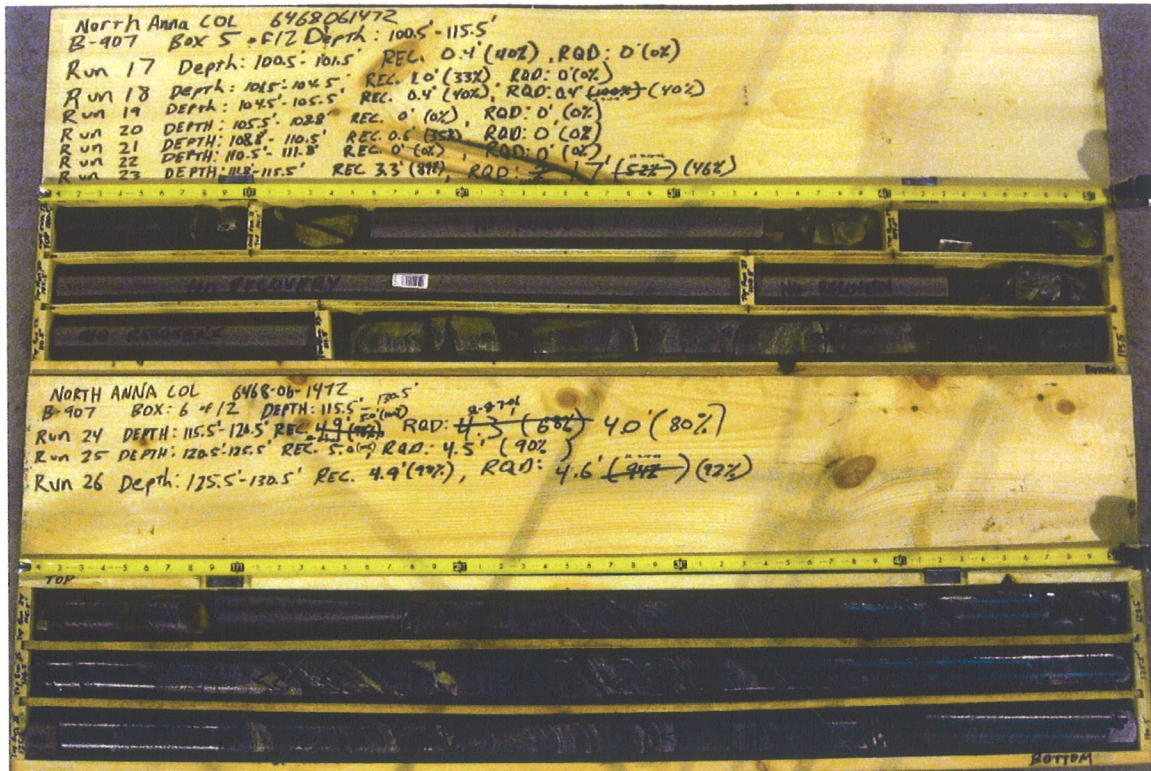 North Anna COL 6468061472
B-907 Box 5 of 12 Depth: 100.5'-115.5'
Run 17 Depth: 100.5-101.5' REC. 0.4' (40%), RQD: 0' (0%)
Run 18 Depth: 101.5'-104.5' REC. 1.0' (33%) RQD: 0' (0%)
Run 19 Depth: 104.5'-105.5' REC. 0.4' (40%), RQD: 0.4' (100%) (40%)
Run 20 DEPTH: 105.5'-108.8' REC. 0' (0%), RQD: 0' (0%)
Run 21 DEPTH: 108.8'-110.5' REC. 0.6' (35%) RQD: 0' (0%)
Run 22 DEPTH: 110.5'-111.8' REC. 0' (0%), RQD: 0' (0%)
Run 23 DEPTH: 111.8'-115.5' REC 3.3' (89%), RQD: 1.7' (52%) (46%)
NO RECOVERY
NO RECOVERY
NO RECOVERY
115.5'
BOTTOM
NORTH ANNA COL 6468-06-1472
B-907 BOX: 6 of 12 DEPTH: 115.5'-130.5'
Run 24 DEPTH: 115.5'-120.5' REC. 4.9' (98%) 5.0' RQD: 4.3 (68%) 4.0' (80%)
Run 25 DEPTH: 120.5'-125.5' REC. 5.0' RQD: 4.5' (90%)
Run 26 Depth: 125.5'-130.5' REC. 4.9' (98%), RQD: 4.6' (94%) (92%)
TOP
BOTTOM